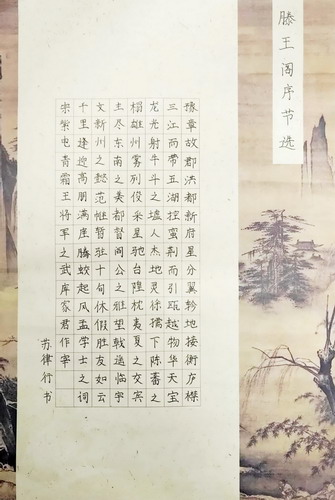 滕王阁序节选
豫章故郡洪都新府星分翼轸地接衡庐襟
三江而带五湖控蛮荆而引瓯越物华天宝
龙光射牛斗之墟人杰地灵徐孺下陈蕃之
榻雄州雾列俊采星驰台隍枕夷夏之交宾
主尽东南之美都督阎公之雅望戟遥临宇
文新州之懿范帷暂驻十旬休假胜友如云
千里逢迎高朋满座腾蛟起凤孟学士之词
宗紫电青霜王将军之武库家君作宰
苏律行书